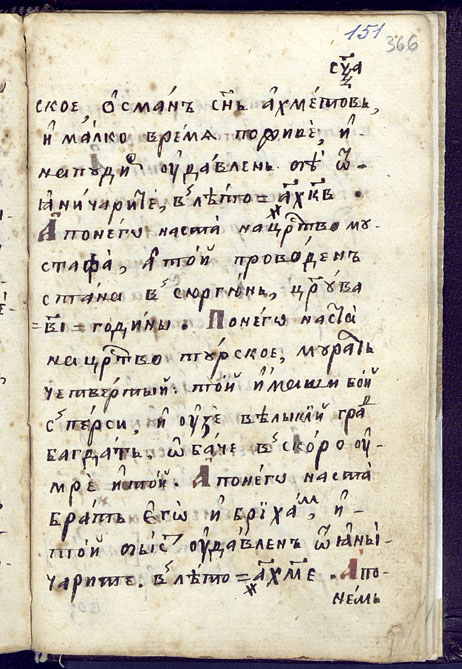 151
366
ское ѻсманъ сн҃ь ахметовь,
и малко времѧ поживѐ, и
напуди удавлень ѿ
ꙗничарите, въ лѣто = ҂ахкв .
А понего наста на црⷭ҇тво му-
стафа, а той проводенъ
стана въ сюргюнь, црⷭ҇тва
= в҃і = години . Понего наста
на црⷭ҇тво турское, муратъ
четвертый . той имаше бой
съ перси, и узѐ велыкїй граⷣ
багдатъ, ѡбаче въ скоро у-
мрѐ и той . А понего наста
братъ егѡ ибрїхаⷨ, и
той бысть удавленъ ѿ ꙗны-
чарите. въ лѣто = ҂ахме . А по-
немь